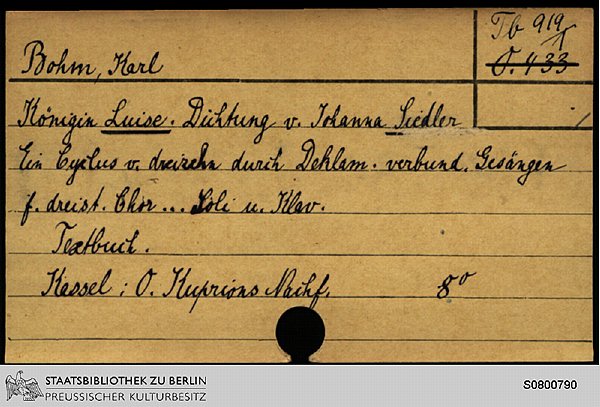 Bohm, Karl
Tb 919/1
O. 433
Königin Luise. Dichtung v. Johanna Siedler
Ein Cyclus v. dreizehn durch Deklam. verbund. Gesängen
f. dreist. Chor ... Soli u. Klav.
Textbuch.
Kassel : O. Kuprions Nachf. 8°
STAATSBIBLIOTHEK ZU BERLIN
PREUSSISCHER KULTURBESITZ
S0800790